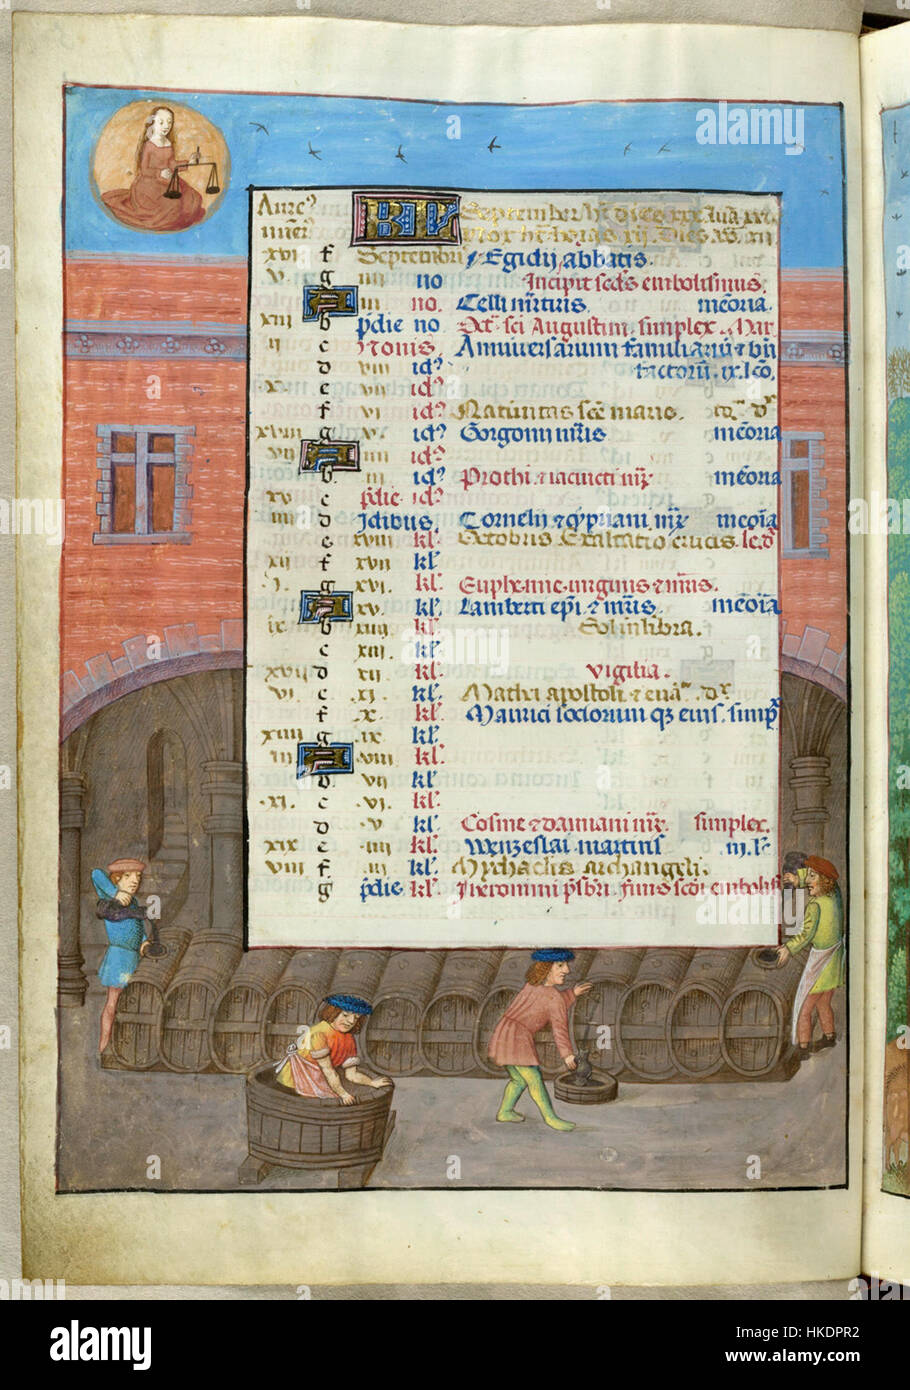 Aure⁹ KL September ht Dies xxx luā xxx
nūer⁹ Nox ht horas xij Dies xij
xvi f Septembris Egidij abbatis.
v g iiii no Incipit embolismus.
A iii no. Celli mrtiris memoria
xiii b p̄die no Oct sci Augustini simplex
ii c Nonis Anniversarium familiariū &
d viii id⁹ factorū. ix. lco.
x e vii id⁹
f vi id⁹ Nativitas sce marie.
xviii g v. id⁹ Gorgonii mris memoria
vii A iiii id⁹
b iii id⁹ Prothi & iacincti mr memoria
xv c p̄die id⁹
iiii d Idibus Cornelij & cypriani mr meōia
e xviii kl. Octobris Exaltatio crucis
xii f xvii kl.
i. g xvi. kl. Euphemie virginis & mris.
A xv. kl. Lamberti epi & mris meōia
ix b xiiii kl. Sol in libra.
c xiii kl.
xvii d xii kl. vigilia.
vi e xi. kl. Mathei apostoli & evā
f x. kl. Maurici sociorum eius. simp
xiiii g ix kl.
iii A viii kl.
b vii kl.
xi. c vi. kl.
d v kl. Cosme & damiani mr simplex.
xix e iiii kl. Wenzeslai martiris iii. lc
viii f iii kl. Mychaelis archangeli.
g p̄die kl. Hieronimi prsbri embolis
alamy
Image ID: HKDPR2
www.alamy.com